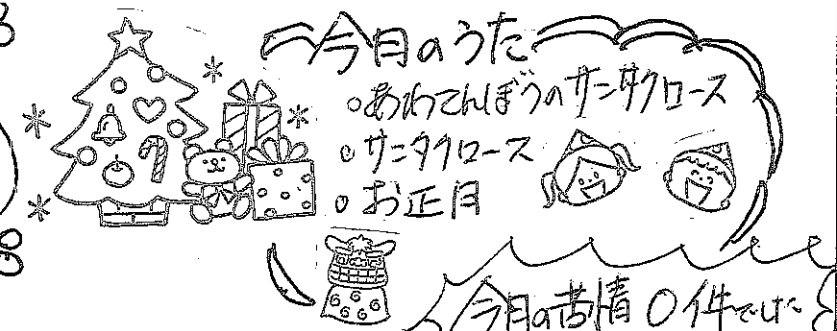 今月のうた
◦あわてんぼうのサンタクロース
◦サンタクロース
◦お正月
今月の苦情 0件でした